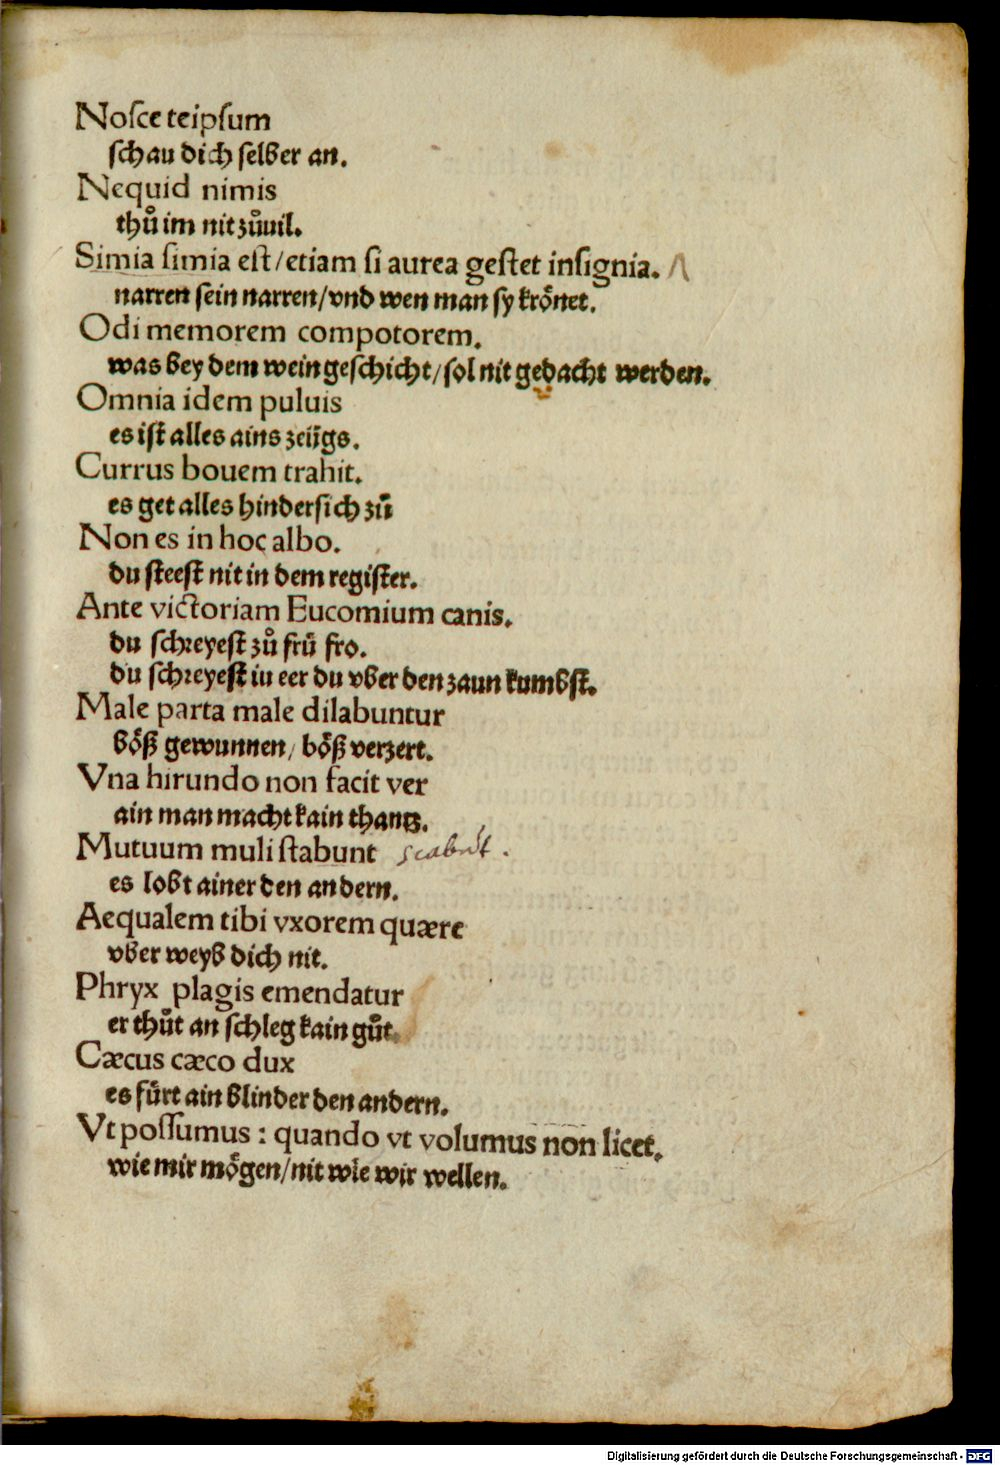 Noſce teipſum
ſchau dich ſelber an.
Nequid nimis
thuͦ im nit zuͦuil.
Simia ſimia eſt/etiam ſi aurea geſtet inſignia.
narren ſein narren/vnd wen man ſy kroͤnet.
Odi memorem compotorem.
was bey dem wein geſchicht/ſol nit gedacht werden.
Omnia idem puluis
es iſt alles ains zeuͤgs.
Currus bouem trahit.
es get alles hinderſich zuͦ
Non es in hoc albo.
du ſteeſt nit in dem regiſter.
Ante victoriam Eucomium canis.
du ſchreyeſt zuͦ fruͤ fro.
du ſchreyeſt iu eer du vber den zaun kumbſt.
Male parta male dilabuntur
boͤß gewunnen/ boͤß verzert.
Vna hirundo non facit ver
ain man macht kain thantz.
Mutuum muli ſtabunt scabūt.
es lobt ainer den andern.
Aequalem tibi vxorem quære
vber weyb dich nit.
Phryx plagis emendatur
er thuͦt an ſchleg kain guͦt.
Cæcus cæco dux
es fuͤrt ain blinder den andern.
Vt poſſumus : quando vt volumus non licet.
wie mir moͤgen/nit wie wir wellen.
Digitalisierung gefördert durch die Deutsche Forschungsgemeinschaft - DFG